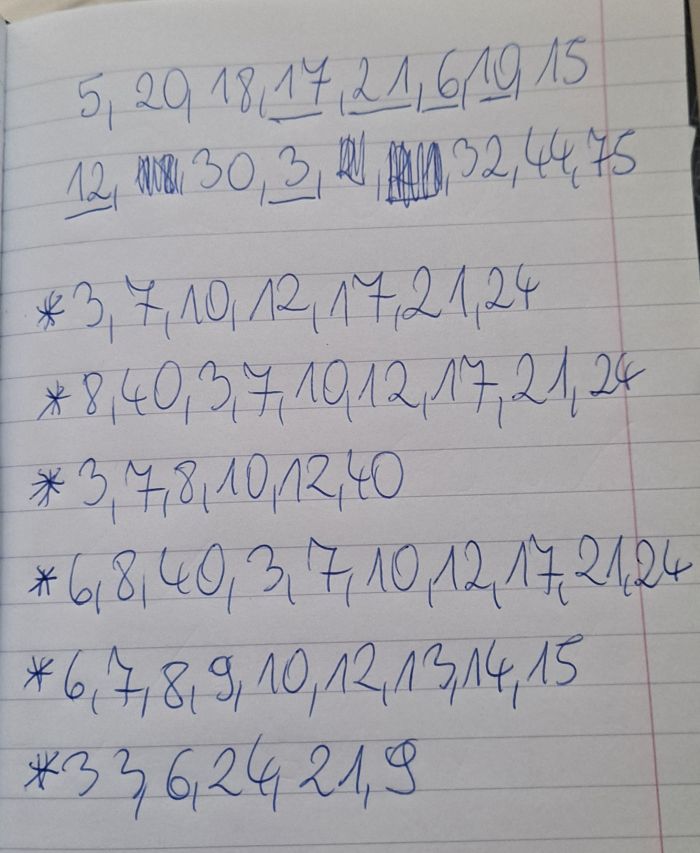 5, 20, 18, 17, 21, 6, 10, 15
12, 30, 3, 32, 44, 75
*3, 7, 10, 12, 17, 21, 24
*8, 40, 3, 7, 10, 12, 17, 21, 24
*3, 7, 8, 10, 12, 40
*6, 8, 40, 3, 7, 10, 12, 17, 21, 24
*6, 7, 8, 9, 10, 12, 13, 14, 15
*33, 6, 24, 21, 9